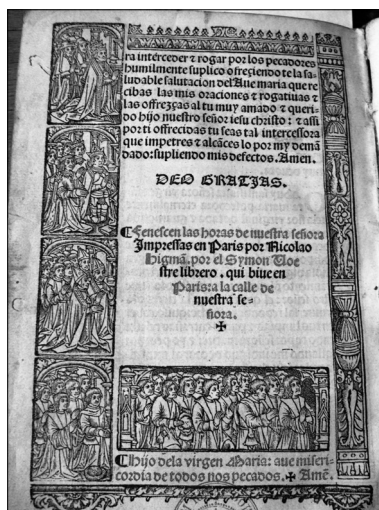 ra interceder ⁊ rogar por los pecadores
humilmente suplico ofreçiendo te la sa-
ludable salutacion del Aue maria que re
cibas las mis oraciones ⁊ rogatiuas ⁊
las offrezças al tu muy amado ⁊ queri-
do hijo nuestro señor iesu christo: ⁊ assi
por ti offrecidas tu seas tal intercessora
que impetres ⁊ alcãces lo por my demã
dado: supliendo mis defectos. Amen.
DEO GRATIAS.
¶Fenescen las horas de nuestra señora
Impressas en Paris por Nicolao
Higmã. por el Symon Uoe
stre librero. qui biue en
Paris: a la calle de
nuestra se-
ñora.
✠
¶Hijo dela virgen Maria: aue miseri-
cordia de todos nos pecados. ✠ Amẽ.